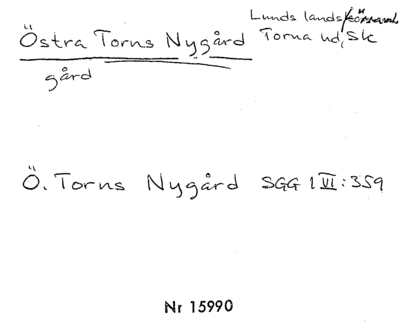 Östra Torns Nygård
gård
Lunds lands
Torna hd, Sk
Ö. Torns Nygård SGG 1 VI:359
Nr 15990